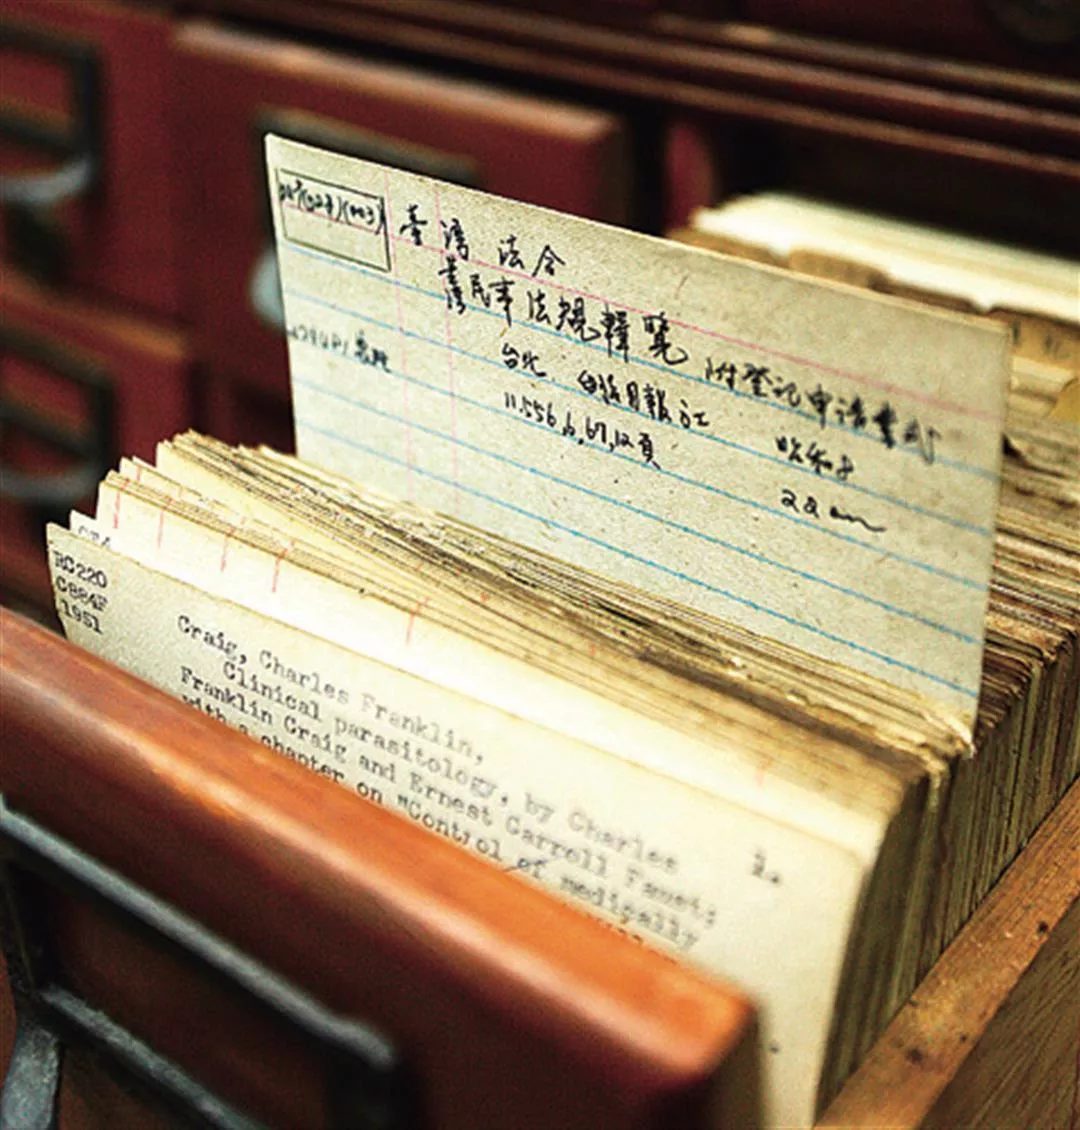 臺灣 法令
臺灣民事法規輯覽 附登記申請書式
台北 台法月報社 昭和8
11,556,6,67,12頁 22cm
RC220
C884F
1951
Craig, Charles Franklin,
Clinical parasitology, by Charles
Franklin Craig and Ernest Carroll Faust;
with a chapter on "Control of medically